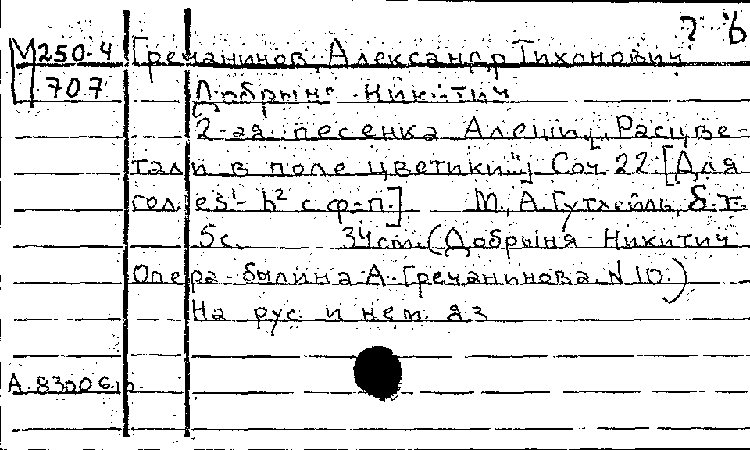 ? б
М250-4 Гречанинов, Александр Тихонович
707 Добрыня Никитич
2-ая песенка Алеши „Расцве-
тали в поле цветики". Соч. 22. [Для
гол. es¹- h² с ф-п.] М., А. Гутхейль, б.г.
5с. 34см. (Добрыня Никитич
Опера-былина А. Гречанинова. N 10.)
На рус. и нем. яз